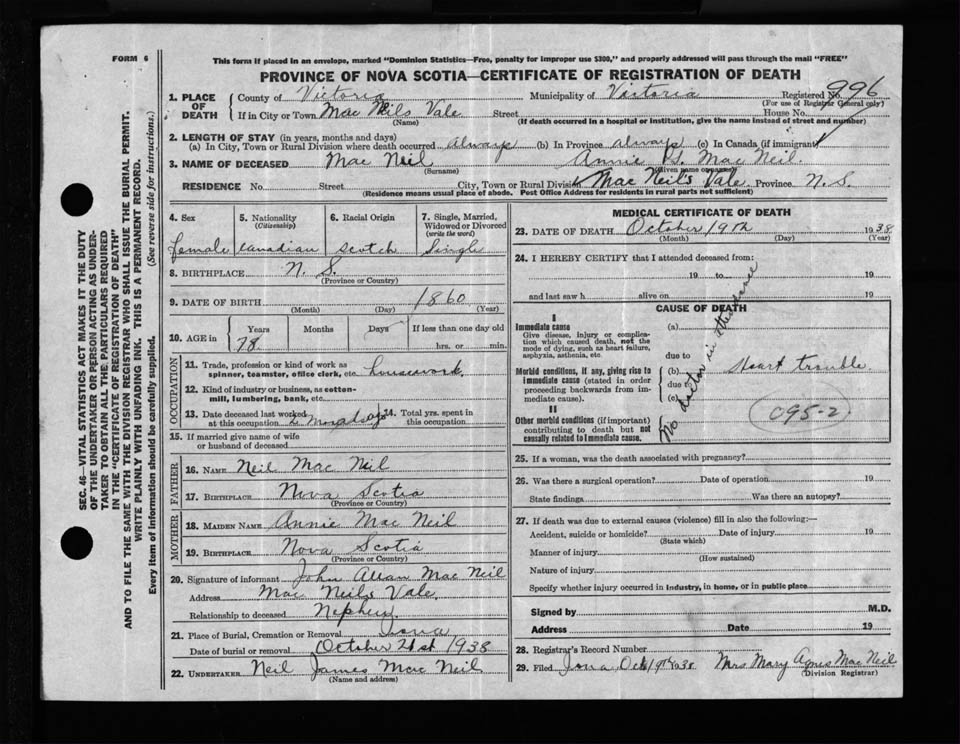 FORM 6
This form if placed in an envelope, marked "Dominion Statistics—Free, penalty for improper use $300," and properly addressed will pass through the mail "FREE"
PROVINCE OF NOVA SCOTIA—CERTIFICATE OF REGISTRATION OF DEATH
SEC. 46—VITAL STATISTICS ACT MAKES IT THE DUTY
OF THE UNDERTAKER OR PERSON ACTING AS UNDER-
TAKER TO OBTAIN ALL THE PARTICULARS REQUIRED
IN THE "CERTIFICATE OF REGISTRATION OF DEATH"
AND TO FILE THE SAME WITH THE DIVISION REGISTRAR WHO SHALL ISSUE THE BURIAL PERMIT.
WRITE PLAINLY WITH UNFADING INK. THIS IS A PERMANENT RECORD.
Every item of information should be carefully supplied. (See reverse side for instructions.)
1. PLACE OF DEATH
County of Victoria Municipality of Victoria Registered No. 996
(For use of Registrar General only)
If in City or Town Mac Neils Vale Street House No.
(Name) (If death occurred in a hospital or institution, give the name instead of street and number)
2. LENGTH OF STAY (in years, months and days)
(a) In City, Town or Rural Division where death occurred always (b) In Province always (c) In Canada (if immigrant)
3. NAME OF DECEASED Mac Neil Annie S. Mac Neil
(Surname) (Given name or names)
RESIDENCE No. Street City, Town or Rural Division Mac Neils Vale Province N.S.
(Residence means usual place of abode. Post Office Address for residents in rural parts not sufficient)
4. Sex
female
5. Nationality
(Citizenship)
Canadian
6. Racial Origin
Scotch
7. Single, Married,
Widowed or Divorced
(write the word)
Single
8. BIRTHPLACE N. S.
(Province or Country)
9. DATE OF BIRTH 1860
(Month) (Day) (Year)
10. AGE in
Years Months Days If less than one day old
78 hrs. or min.
OCCUPATION
11. Trade, profession or kind of work as
spinner, teamster, office clerk, etc. housework
12. Kind of industry or business, as cotton-
mill, lumbering, bank, etc.
13. Date deceased last worked
at this occupation 2 Months ago
14. Total yrs. spent in
this occupation
15. If married give name of wife
or husband of deceased
FATHER
16. NAME Neil Mac Neil
17. BIRTHPLACE Nova Scotia
(Province or Country)
MOTHER
18. MAIDEN NAME Annie Mac Neil
19. BIRTHPLACE Nova Scotia
(Province or Country)
20. Signature of informant John Allan Mac Neil
Address Mac Neils Vale
Relationship to deceased Nephew
21. Place of Burial, Cremation or Removal Iona
Date of burial or removal October 21st 1938
22. UNDERTAKER Neil James Mac Neil
(Name and address)
MEDICAL CERTIFICATE OF DEATH
23. DATE OF DEATH October 19th 1938
(Month) (Day) (Year)
24. I HEREBY CERTIFY that I attended deceased from:
19 to 19
and last saw h alive on 19
CAUSE OF DEATH
I
Immediate cause
Give disease, injury or complica-
tion which caused death, not the
mode of dying, such as heart failure,
asphyxia, asthenia, etc.
(a)
due to
Morbid conditions, if any, giving rise to
immediate cause (stated in order
proceeding backwards from im-
mediate cause).
(b) Heart trouble
due to
(c)
II
Other morbid conditions (if important)
contributing to death but not
causally related to immediate cause.
No doctor in attendance
095-2
25. If a woman, was the death associated with pregnancy?
26. Was there a surgical operation? Date of operation 19
State findings Was there an autopsy?
27. If death was due to external causes (violence) fill in also the following:—
Accident, suicide or homicide? Date of injury 19
(State which)
Manner of injury
(How sustained)
Nature of injury
Specify whether injury occurred in industry, in home, or in public place
Signed by M.D.
Address Date 19
28. Registrar's Record Number
29. Filed Iona Oct 19th 1938 Mrs. Mary Agnes Mac Neil
(Division Registrar)